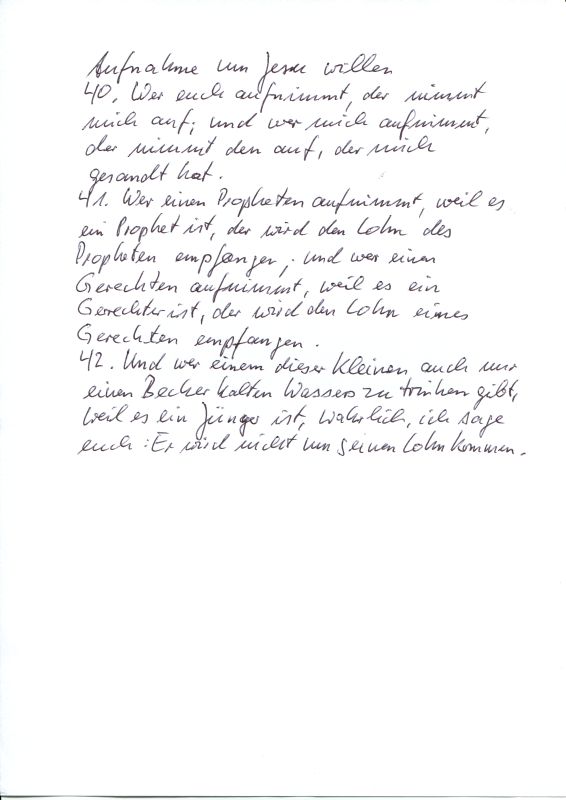 Aufnahme um Jesu willen
40. Wer euch aufnimmt, der nimmt
mich auf; und wer mich aufnimmt,
der nimmt den auf, der mich
gesandt hat.
41. Wer einen Propheten aufnimmt, weil es
ein Prophet ist, der wird den Lohn des
Propheten empfangen; und wer einen
Gerechten aufnimmt, weil es ein
Gerechter ist, der wird den Lohn eines
Gerechten empfangen.
42. Und wer einem dieser Kleinen auch nur
einen Becher kalten Wassers zu trinken gibt,
weil es ein Jünger ist, wahrlich, ich sage
euch: Er wird nicht um seinen Lohn kommen.